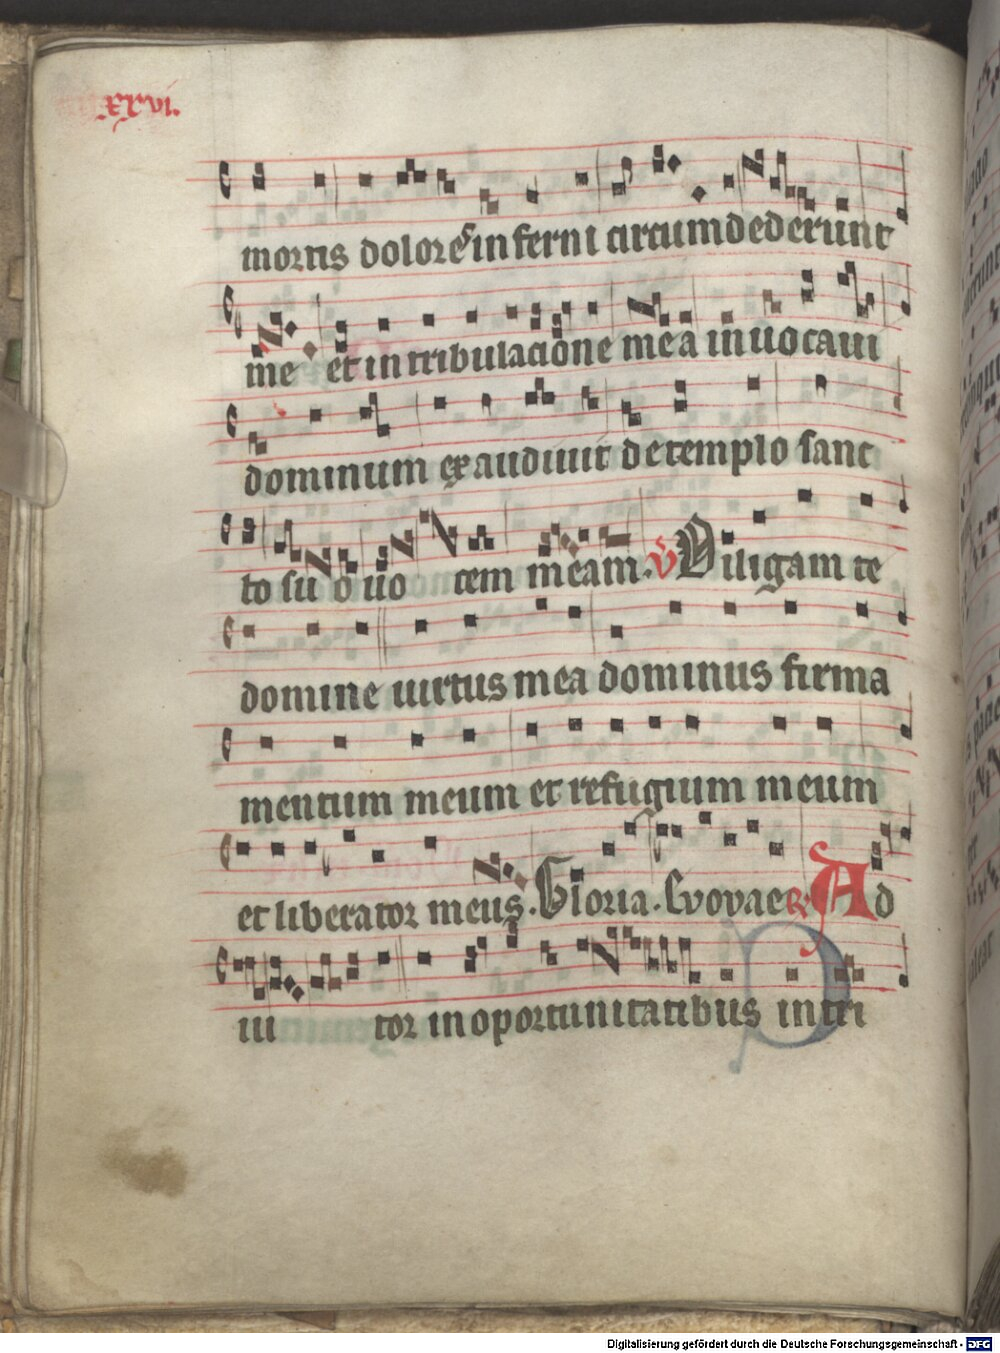 xxvi.
mortis dolores inferni circumdederunt
me et in tribulacione mea inuocaui
dominum exaudiuit de templo sanc
to su o uo cem meam. V Diligam te
domine uirtus mea dominus firma
mentum meum et refugium meum
et liberator meus. Gloria. Evovae R Ad
iu tor in oportunitatibus in tri
Digitalisierung gefördert durch die Deutsche Forschungsgemeinschaft - DFG